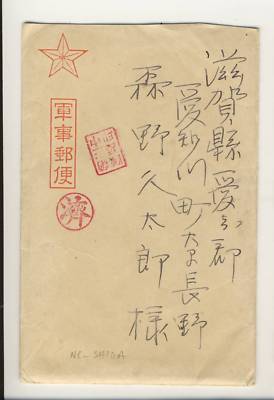 滋賀縣愛知郡
愛知川町大字長野
森野久太郎様
軍事郵便
濟
NE-SHIGA